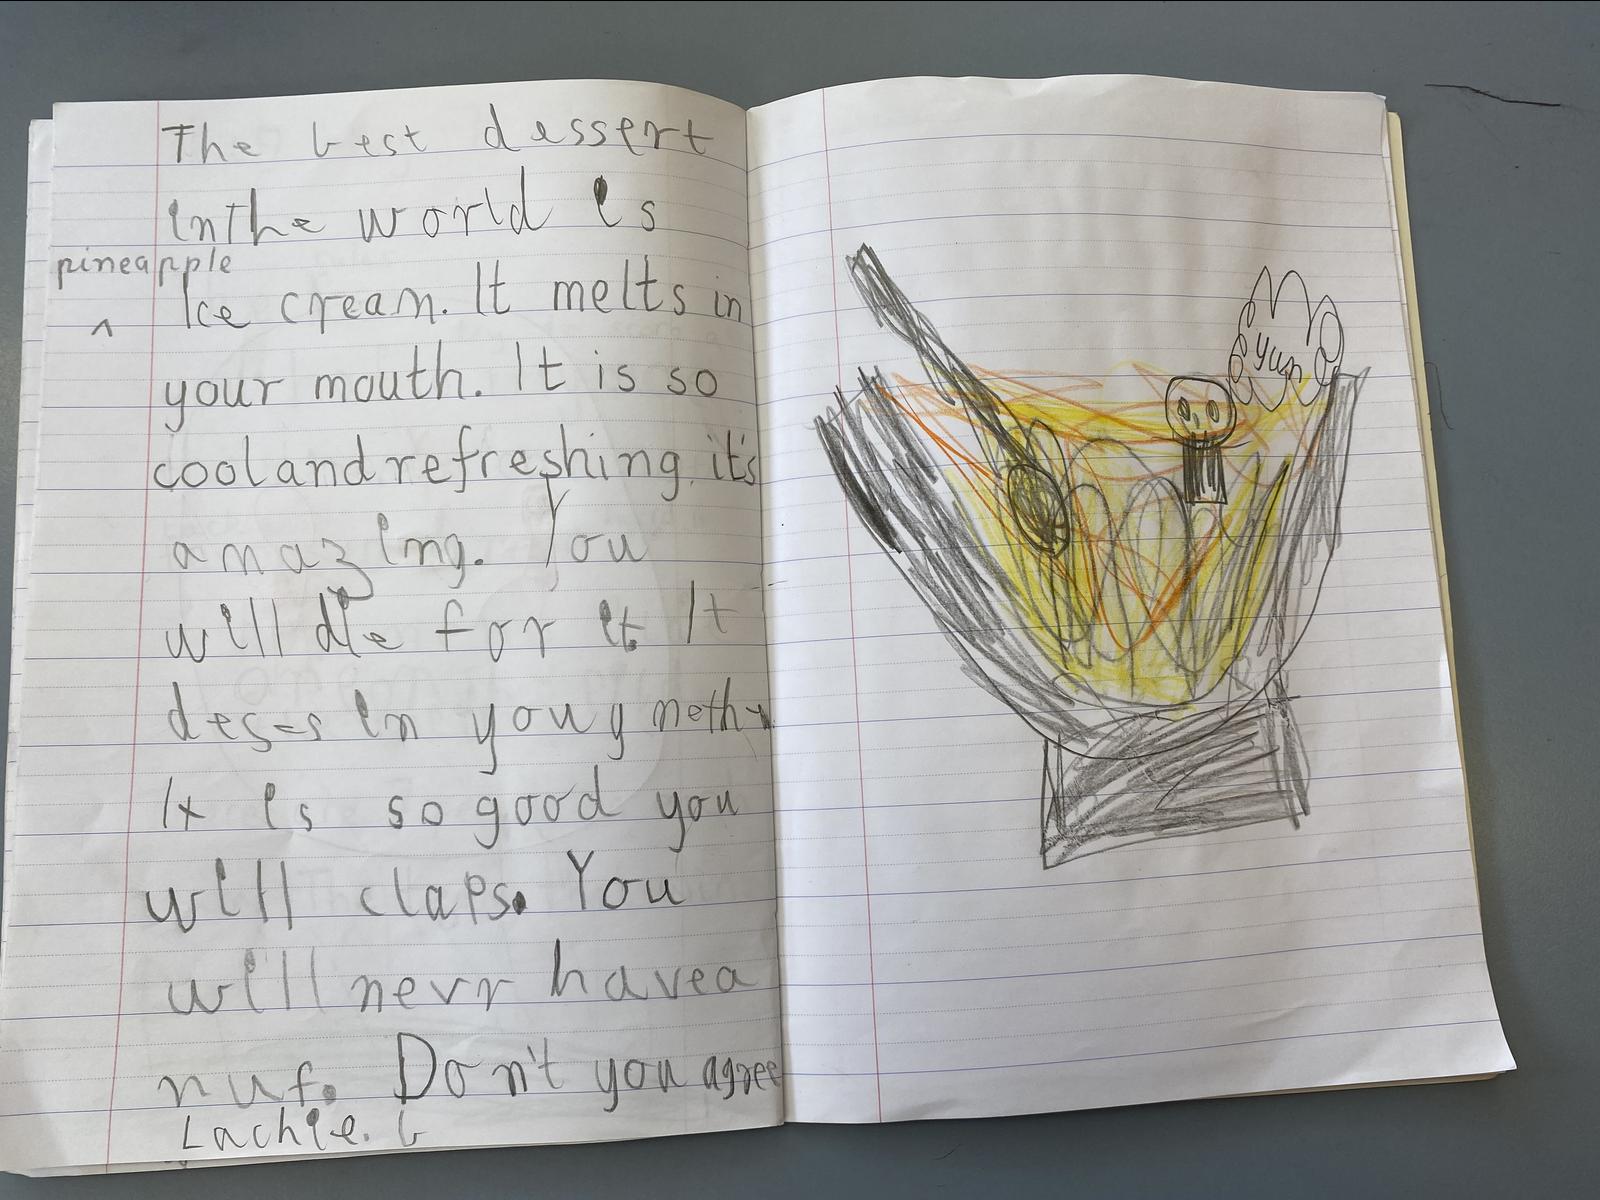 The best dessert
in the world is
pineapple
^ Ice cream. It melts in
your mouth. It is so
cool and refreshing. it's
amazing. You
will die for it. It
in you
It is so good you
will claps. You
will nevr have a
nuf. Don't you agree
Lachie. G
yum